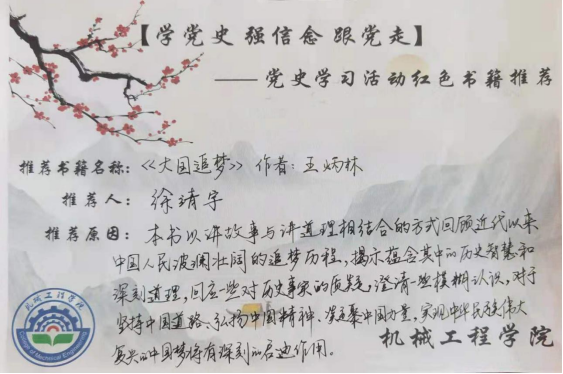 【学党史 强信念 跟党走】
——党史学习活动红色书籍推荐
推荐书籍名称：《大国追梦》 作者：王炳林
推荐人：徐靖宇
推荐原因：本书以讲故事与讲道理相结合的方式回顾近代以来
中国人民波澜壮阔的追梦历程，揭示蕴含其中的历史智慧和
深刻道理，回应些对历史事实的质疑，澄清一些模糊认识，对于
坚持中国道路、弘扬中国精神、凝聚中国力量，实现中华民族伟大
复兴的中国梦将有深刻的启迪作用。
机械工程学院
机械工程学院